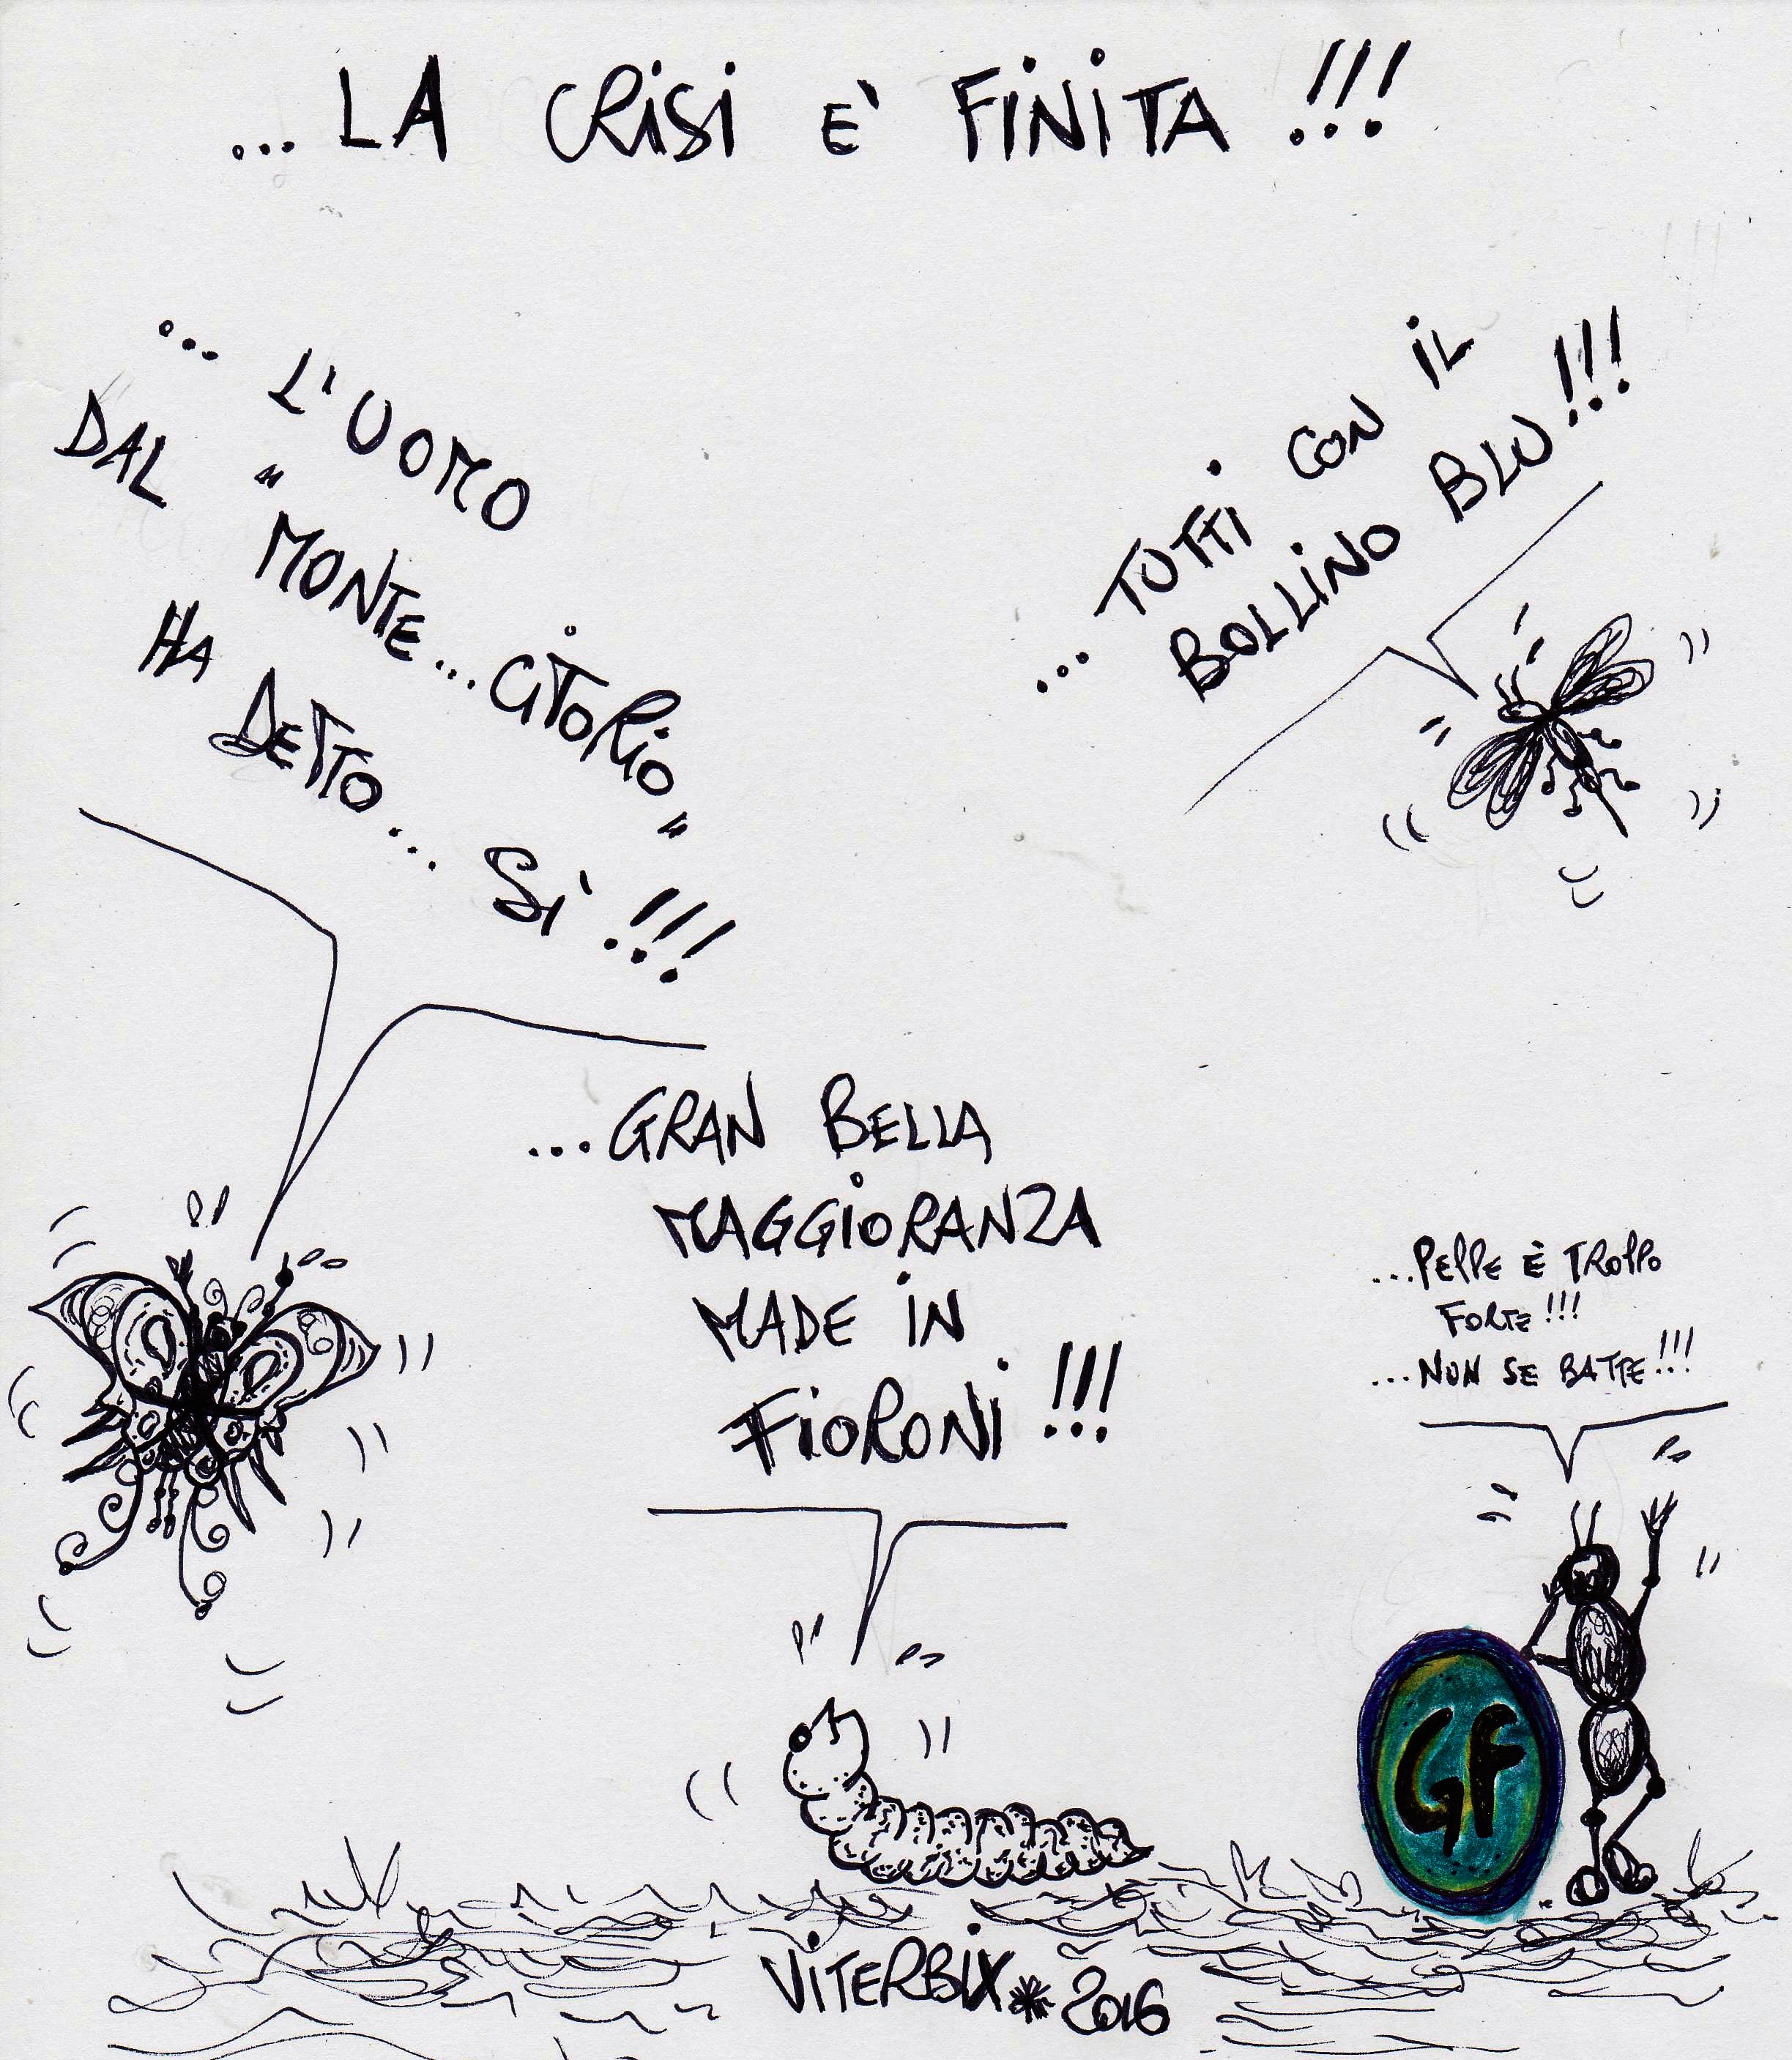 ...LA CRiSi E' FiNiTA!!!
... L'UOMO
DAL "MONTE...CiTORiO"
HA DETTO... Sì!!!
... TUTTi CON iL
BOLLiNO BLU!!!
...GRAN BELLA
MAGGiORANZA
MADE iN
FiORONi!!!
...PEPPE È TROPPO
FORTE!!!
...NUN SE BATTE!!!
GF
ViTERBiX*2016